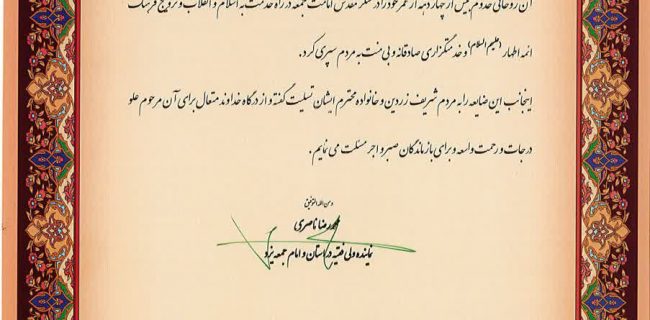 آن روحانی خدوم بیش از چهار دهه از عمر خود را در سنگر مقدس امامت جمعه در راه خدمت به اسلام و انقلاب و ترویج فرهنگ
ائمه اطهار (علیهم السلام) و خدمتگزاری صادقانه و بی منت به مردم سپری کرد.
اینجانب این ضایعه را به مردم شریف زردین و خانواده محترم ایشان تسلیت گفته و از درگاه خداوند متعال برای آن مرحوم علو
درجات و رحمت واسعه و برای بازماندگان صبر و اجر مسئلت می نمایم.
ومن الله التوفیق
محمدرضا ناصری
نماینده ولی فقیه در استان و امام جمعه یزد